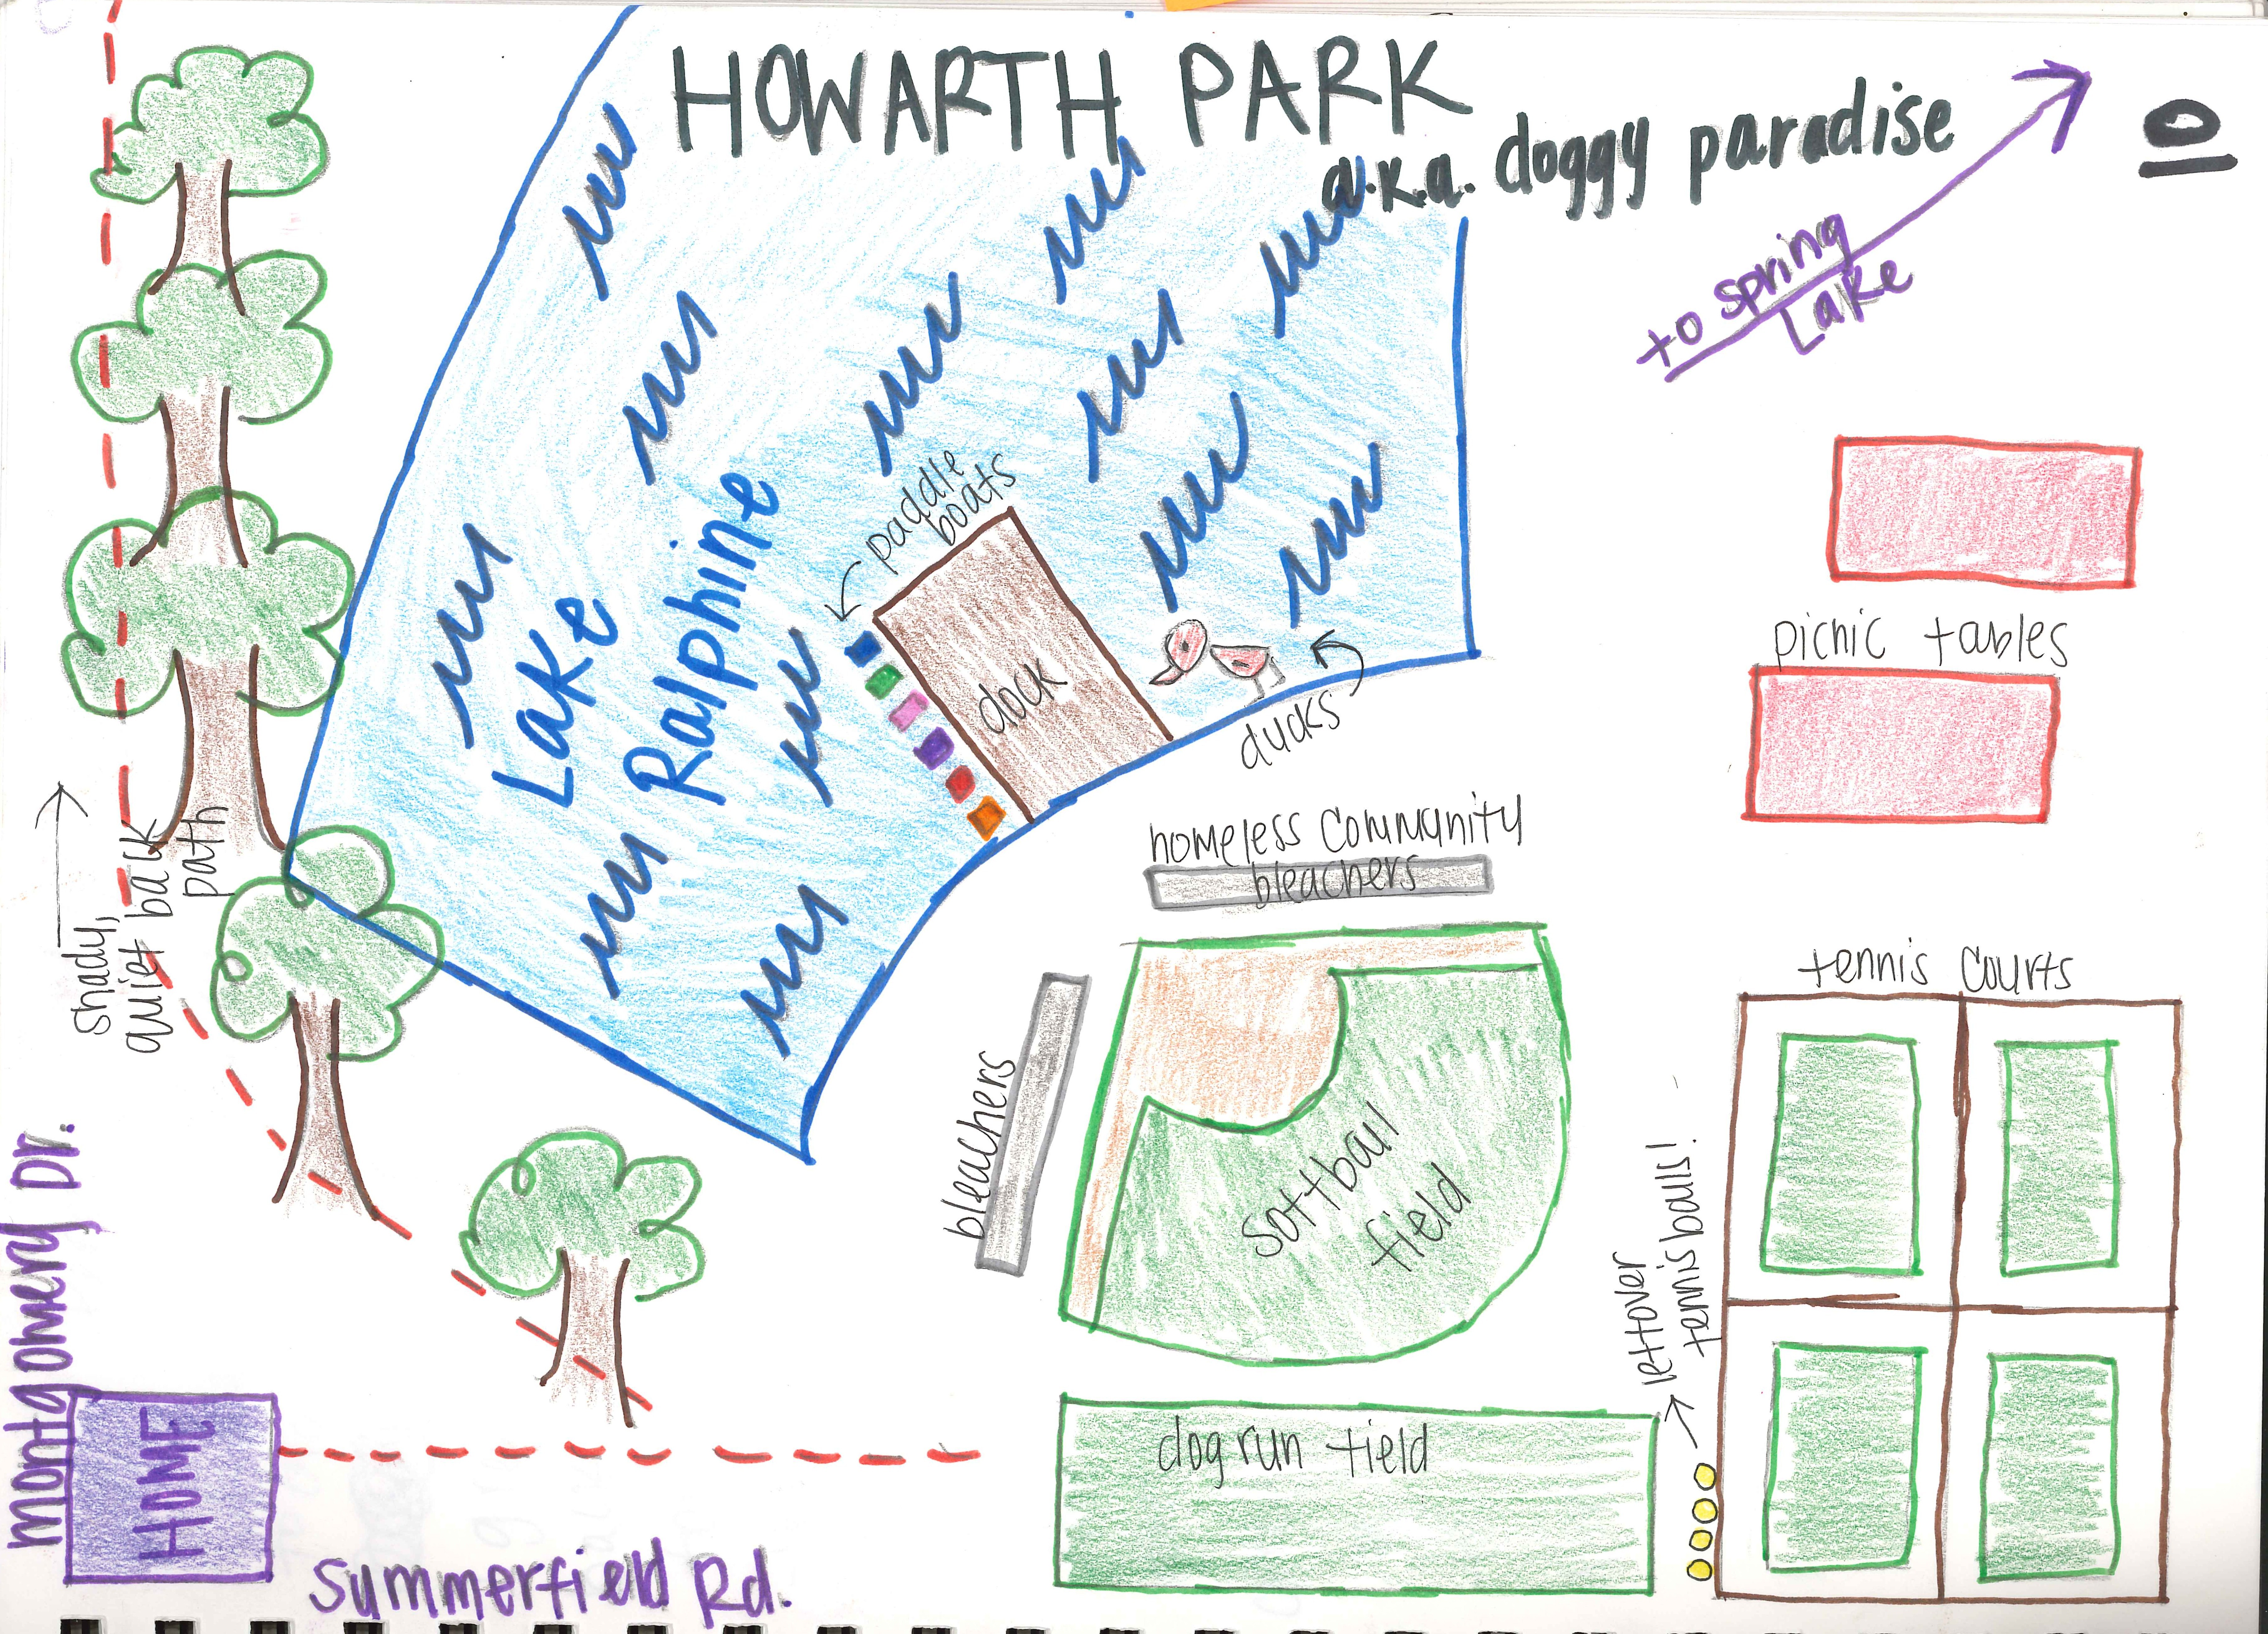 HOWARTH PARK
a.k.a. doggy paradise
to spring
Lake
paddle
boats
Lake
Ralphine
dock
ducks
picnic tables
homeless community
bleachers
tennis courts
shady,
quiet back
path
bleachers
softball
field
leftover
tennis balls!
Montgomery Dr.
HOME
dog run field
Summerfield Rd.